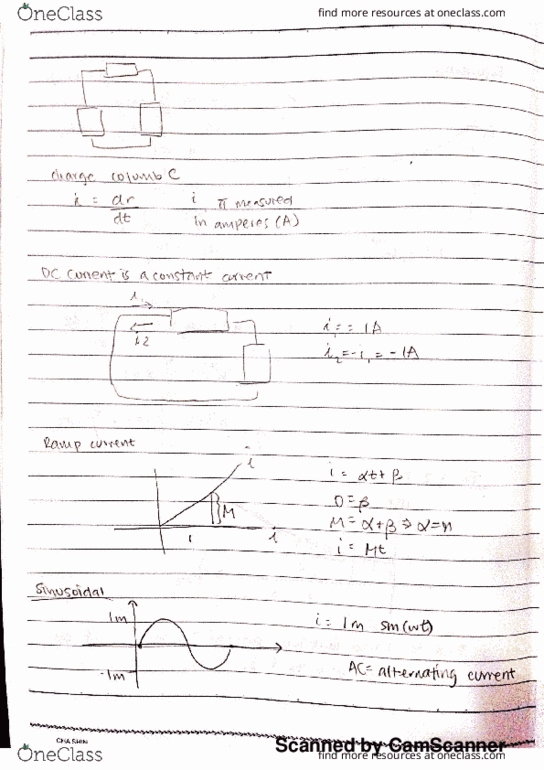 OneClass
find more resources at oneclass.com
charge columb C
i = dr/dt
i π measured
in amperes (A)
DC current is a constant current
i,
i2
i, = 1A
i2 = -i, = -1A
Ramp current
i
M
1
i
i = αt + β
0 = β
M = α + β ⇒ α = M
i = Mt
Sinusoidal
Im
-Im
i = Im sin(wt)
AC = alternating current
Scanned by CamScanner
OneClass
find more resources at oneclass.com